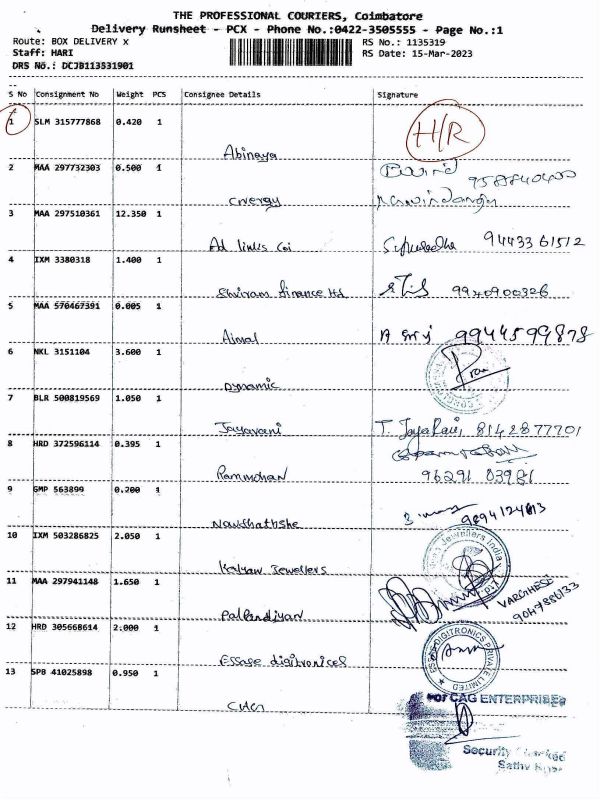 THE PROFESSIONAL COURIERS, Coimbatore
Delivery Runsheet - PCX - Phone No.:0422-3505555 - Page No.:1
Route: BOX DELIVERY x RS No.: 1135319
Staff: HARI RS Date: 15-Mar-2023
DRS No.: DCJB113531901
S No Consignment No Weight PCS Consignee Details Signature
1 SLM 315777868 0.420 1 H/R
Abinaya
2 MAA 297732303 0.500 1
9588840400
3 MAA 297510361 12.350 1
Ad links 9443361512
4 IXM 3380318 1.400 1
Shriram finance ltd 9940900326
5 MAA 570467391 0.005 1
Ajmal 9944599878
6 NKL 3151104 3.600 1
Dynamic
7 BLR 500819569 1.050 1
Jayavani T. 8142877701
8 HRD 372596114 0.395 1
Rammohan 96291 03981
9 GMP 563899 0.200 1
10 IXM 503286825 2.050 1
Jewellers India
Kalyan Jewellers
11 MAA 297941148 1.650 1
Palpandiyan VARGHESE
12 HRD 305668614 2.000 1
DIGITRONICS PRIVATE LIMITED
Essae digitronices
13 SPB 41025898 0.950 1
For CAG ENTERPRISES
Security